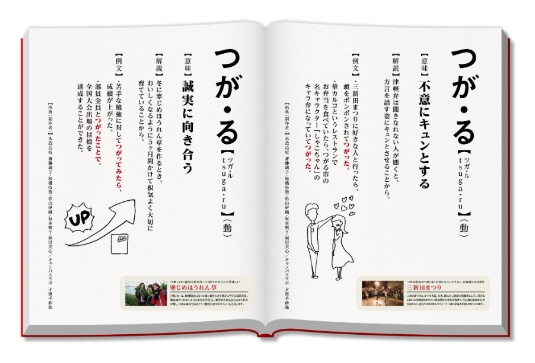 つが・る【ツガ・ル tsuga・ru】(動)
【意味】不意にキュンとする
【解説】津軽弁は聞きなれない人が聞くと、
方言を話す姿にキュンとさせることから。
【例文】・三新田まつりに好きな人と行ったら、
頭をポンポンされてつがった。
・華カルコというレストランで
お弁当を食べていたら、つがる市の
名キャラクター「しゃこちゃん」の
キャラ弁になっていてつがった。
三新田まつり
つが・る【ツガ・ル tsuga・ru】(動)
【意味】誠実に向き合う
【解説】冬に寒じめほうれん草を作るとき、
おいしくなるように5ヶ月間かけて根気よく大切に
育てていることから。
【例文】・苦手な勉強に対してつがってみたら、
成績が上がった。
・部員全員とつがったことで、
全国大会出場の目標を
達成することができた。
UP
寒じめほうれん草